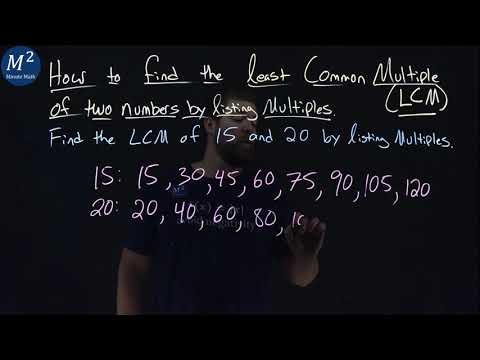 M²
Minute Math
How to find the least Common Multiple
of two numbers by listing Multiples. (LCM)
Find the LCM of 15 and 20 by listing Multiples.
15: 15, 30, 45, 60, 75, 90, 105, 120
20: 20, 40, 60, 80, 10
M²